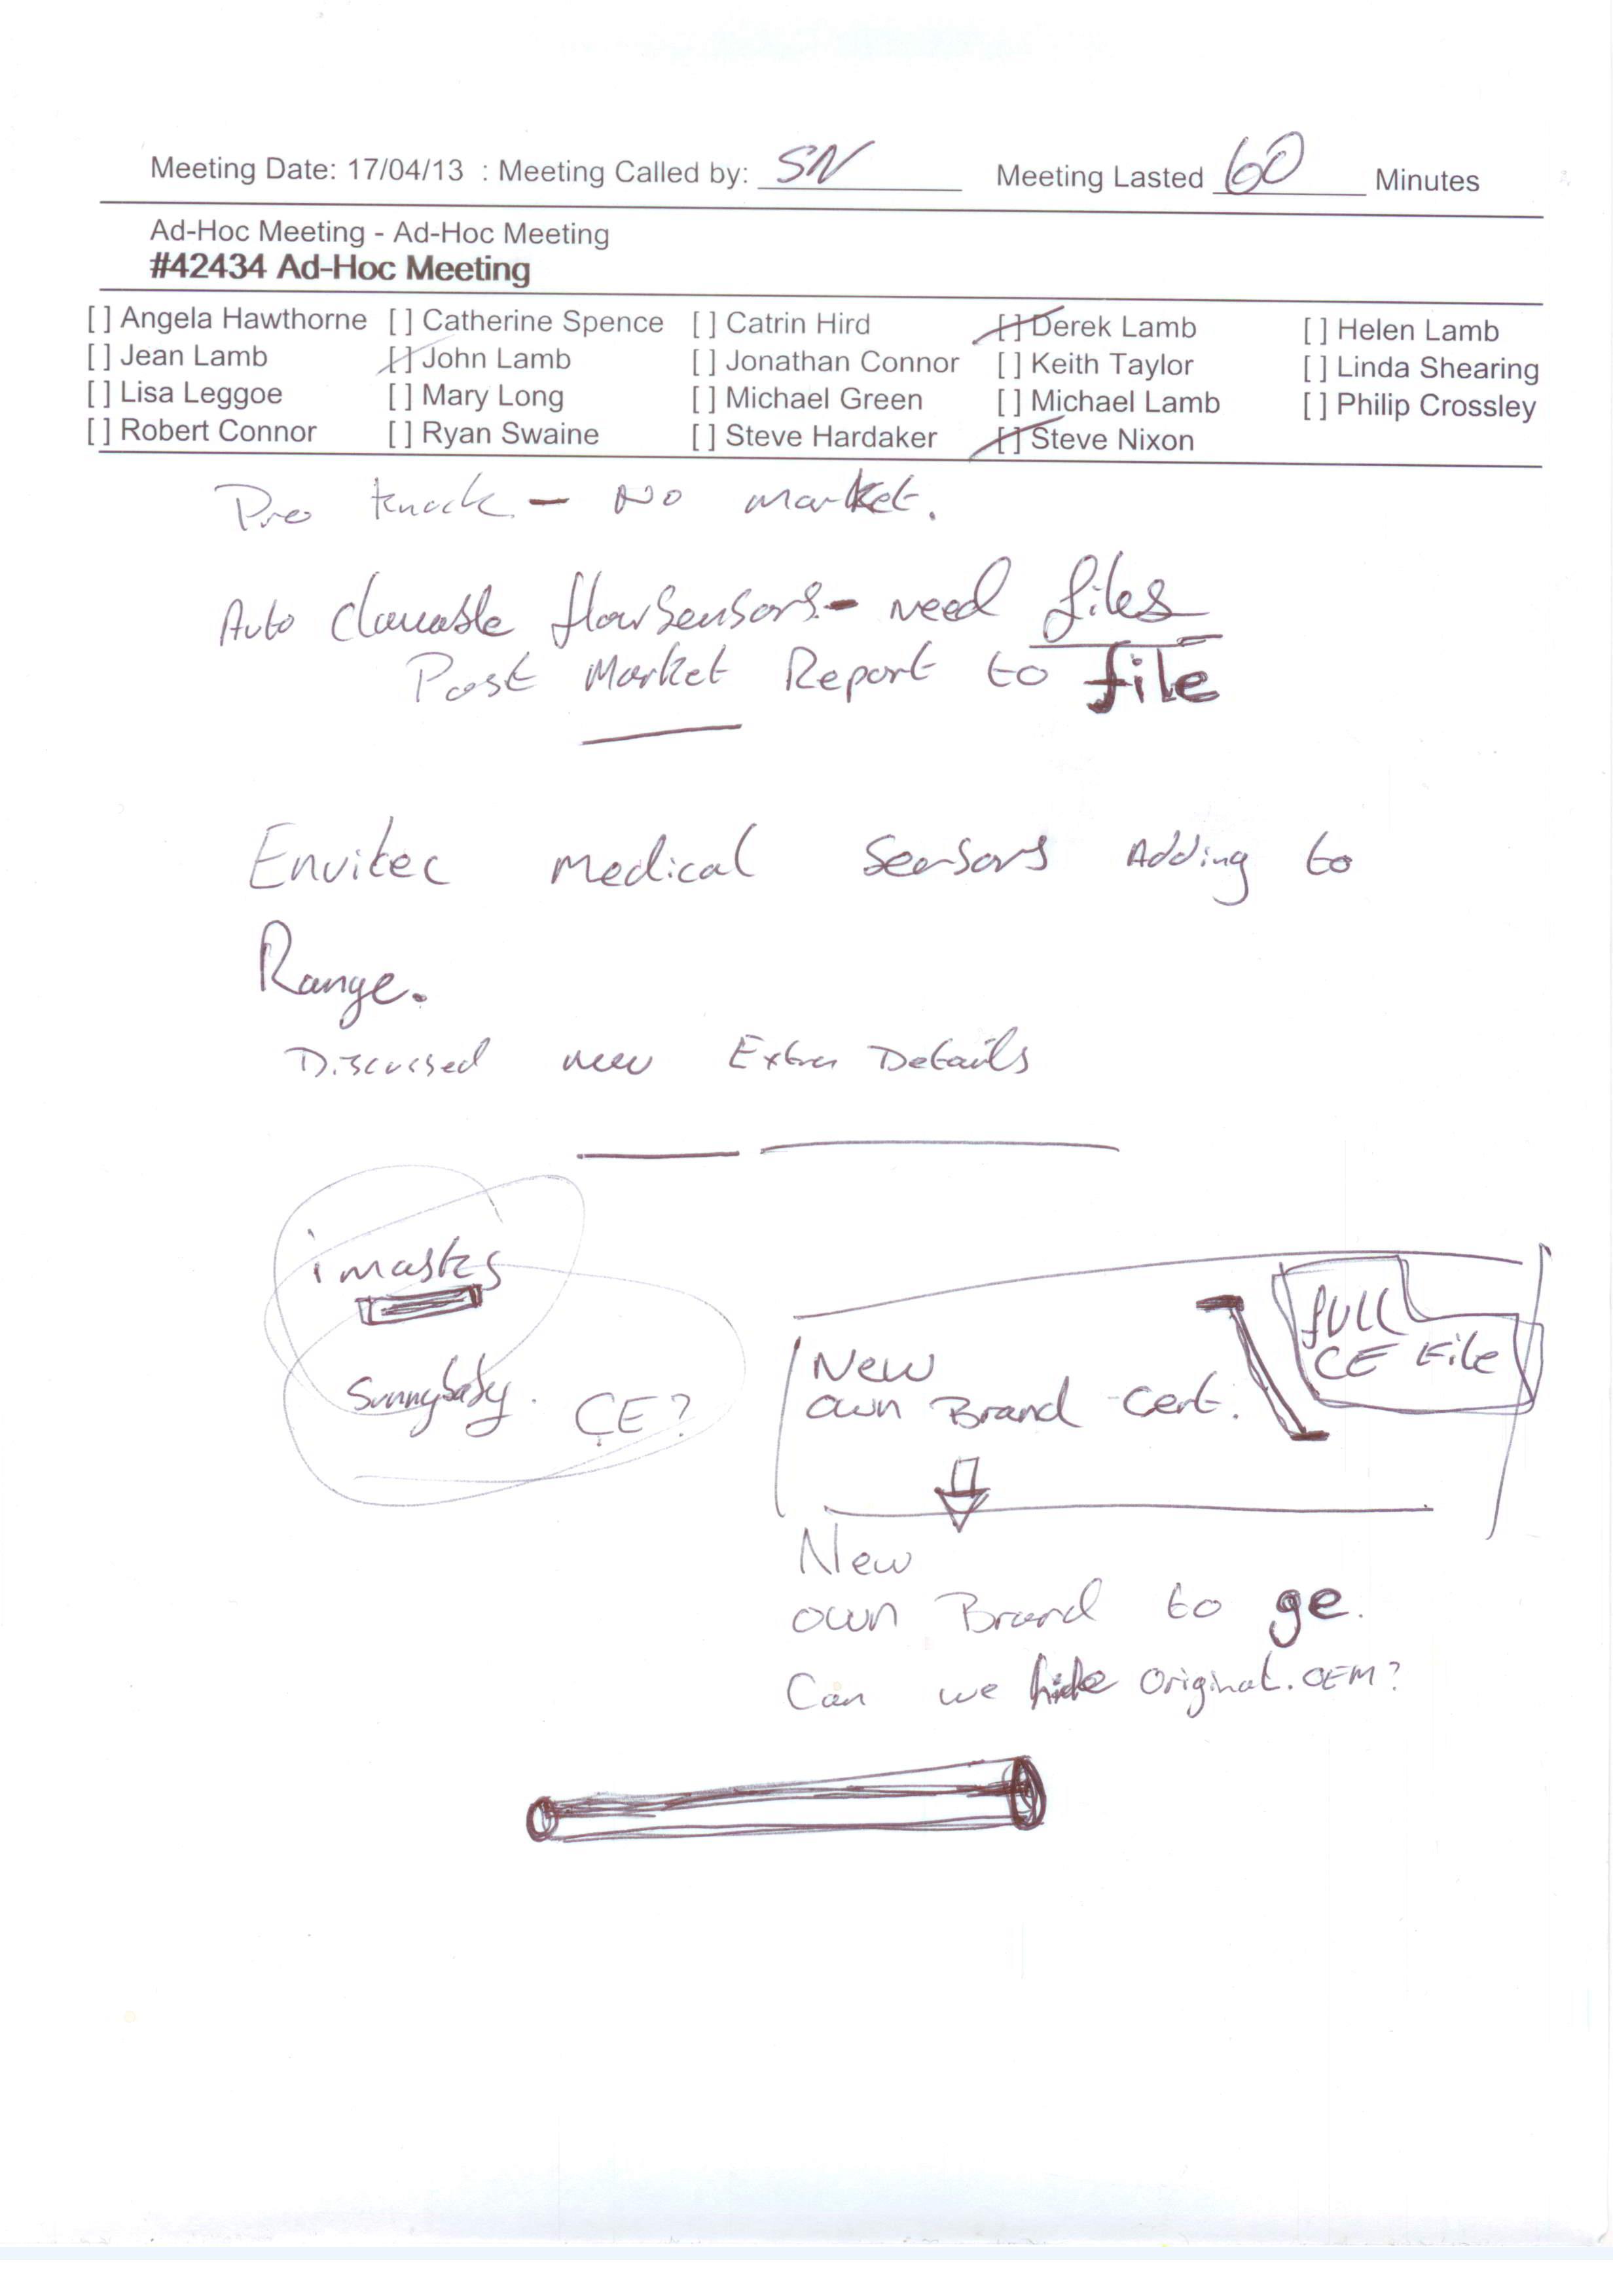 Meeting Date: 17/04/13 : Meeting Called by: SN Meeting Lasted 60 Minutes
Ad-Hoc Meeting - Ad-Hoc Meeting
#42434 Ad-Hoc Meeting
[ ] Angela Hawthorne [ ] Catherine Spence [ ] Catrin Hird [ ] Derek Lamb [ ] Helen Lamb
[ ] Jean Lamb [ ] John Lamb [ ] Jonathan Connor [ ] Keith Taylor [ ] Linda Shearing
[ ] Lisa Leggoe [ ] Mary Long [ ] Michael Green [ ] Michael Lamb [ ] Philip Crossley
[ ] Robert Connor [ ] Ryan Swaine [ ] Steve Hardaker [ ] Steve Nixon
Pre knock - No market.
Auto flowsensors - need files
Post Market Report to file
Envitec medical sensors Adding to
Range.
Discussed new Extra Details
imasks
Sunnybaby. CE?
full
CE File
New
own Brand cert.
New
own Brand to ge.
Can we hide Original. OEM?